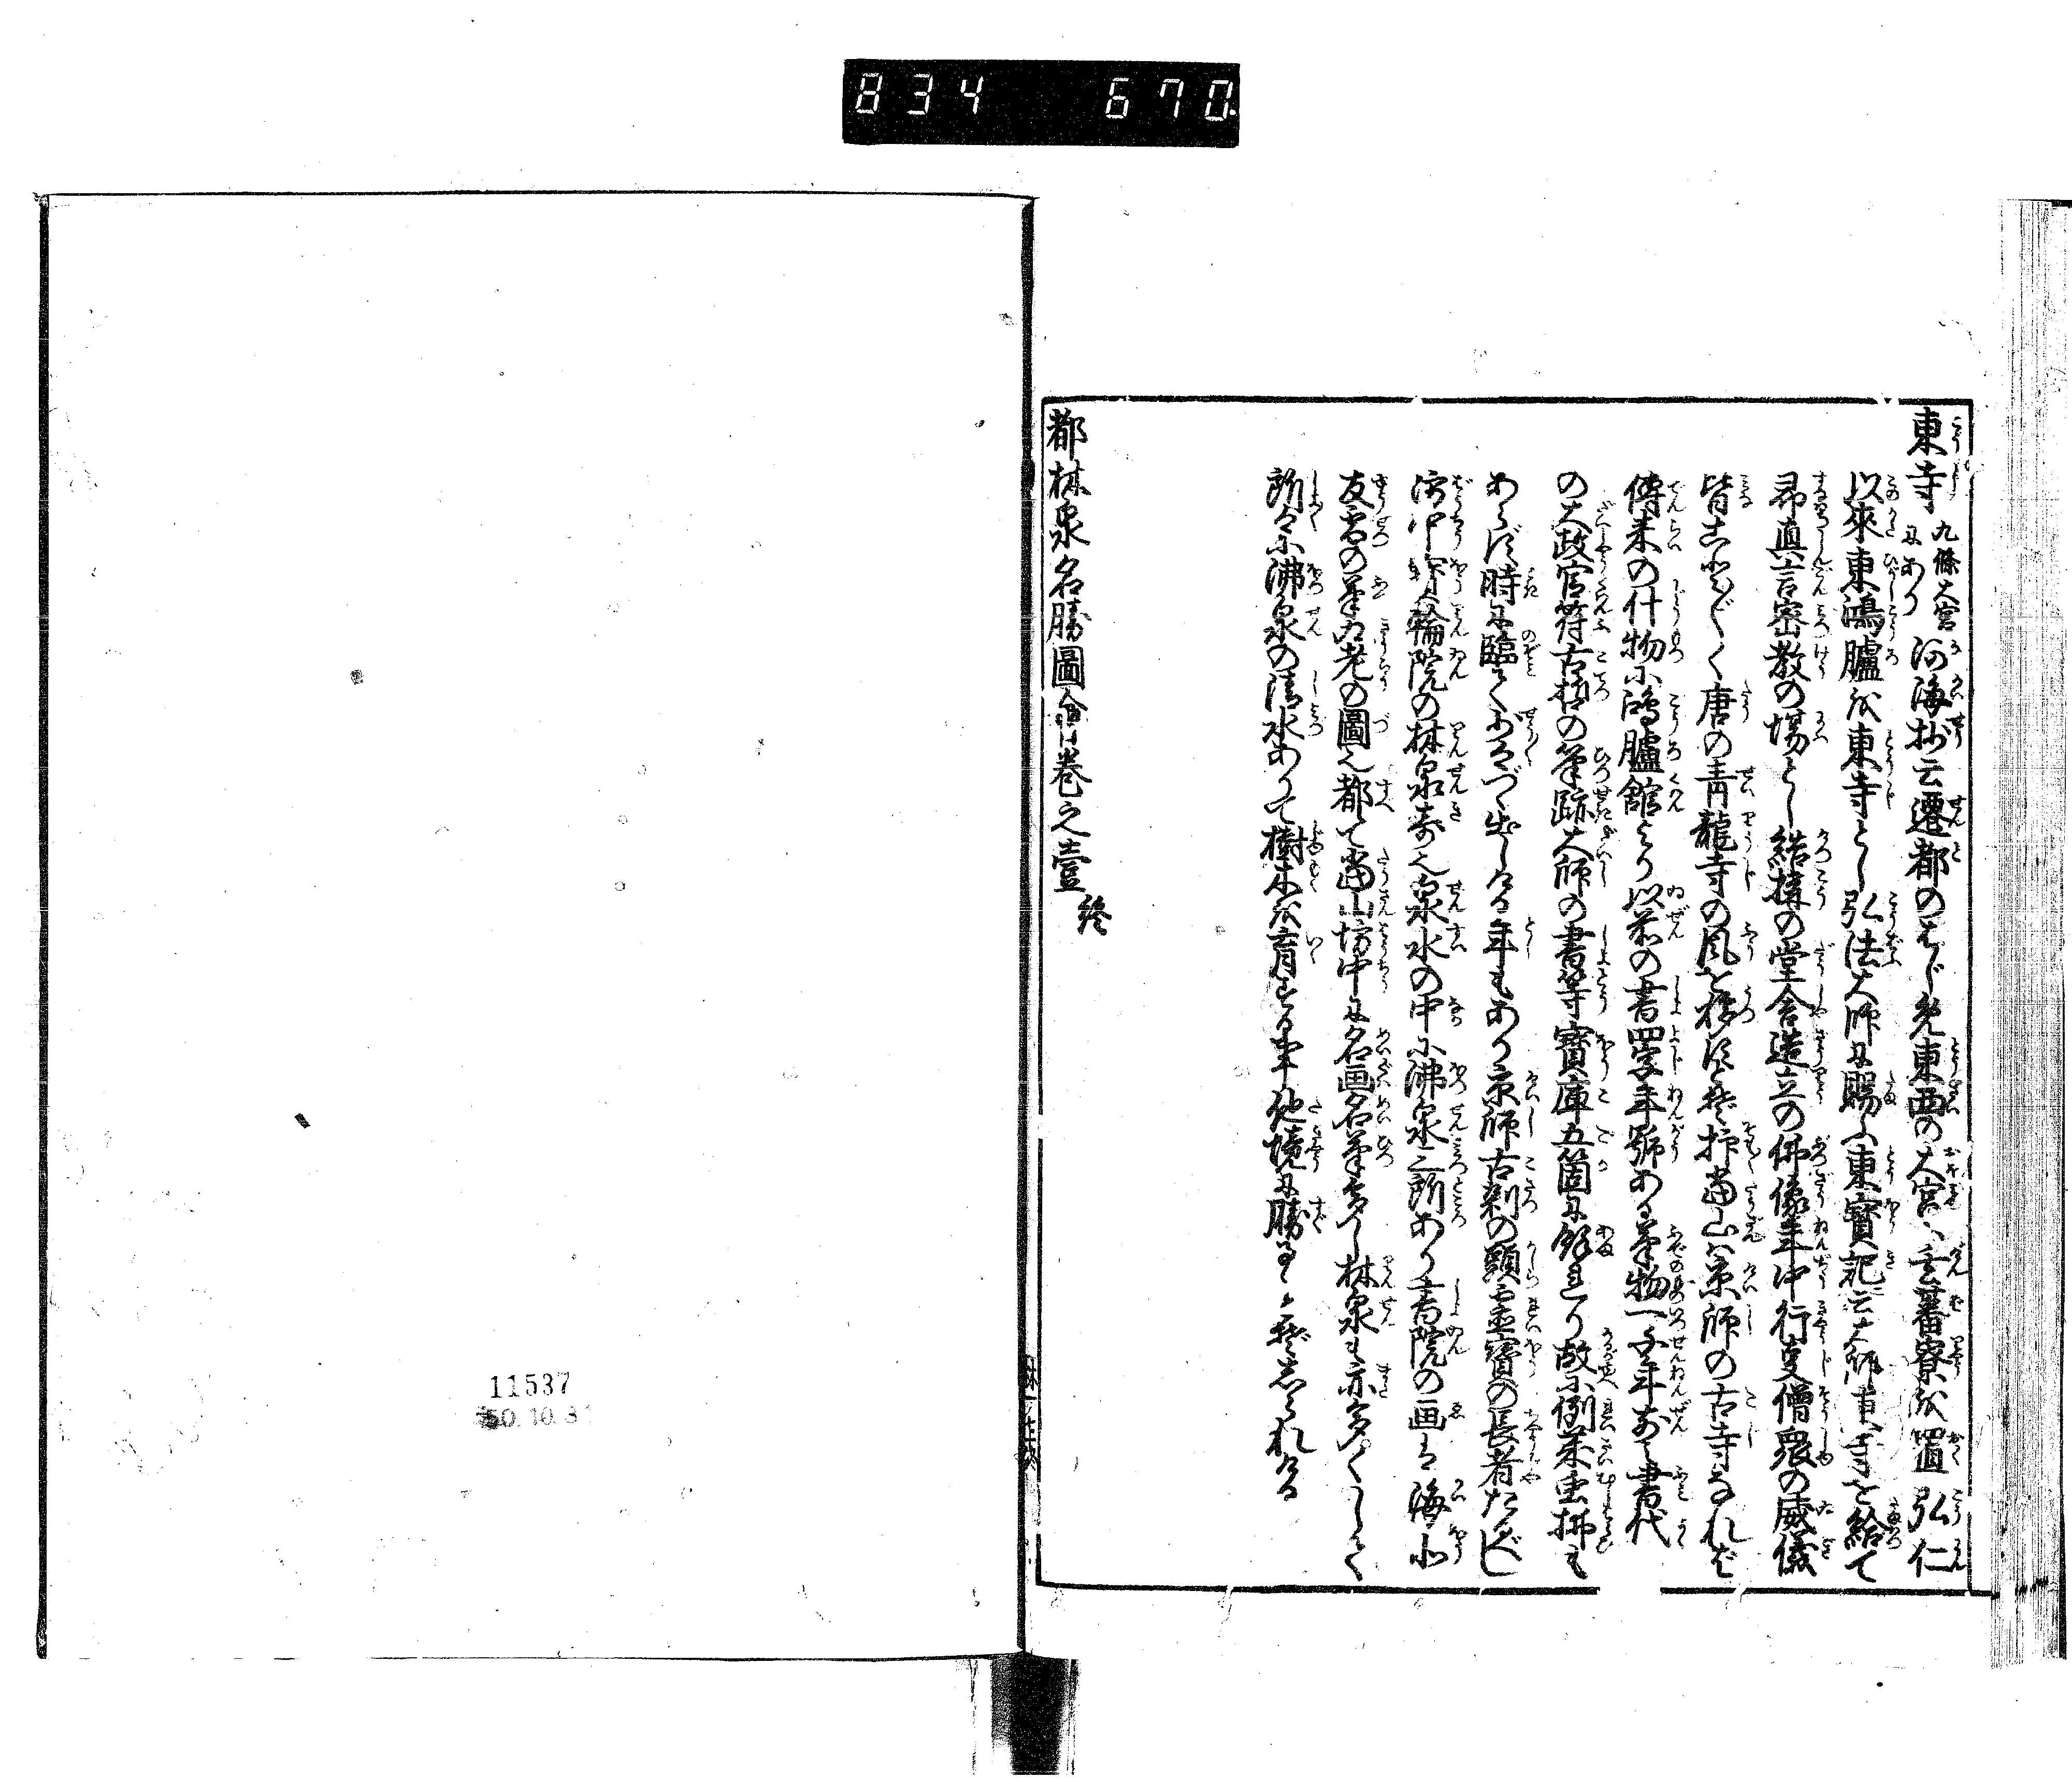 834 670
東寺 九條大宮にあり 河海抄云遷都のはじめ東西の大宮に玄蕃寮を置弘仁
以來東鴻臚を東寺とし弘法大師に賜ふ東寳記云大師東寺を給て
帰真言密教の場とし結構の堂舎造立の佛像年中行事僧衆の威儀
皆こと〴〵く唐の青龍寺の風を移すとぞ抑當山は京師の古寺なれば
傳来の什物に鴻臚館より以前の書畧年号ある筆物一千年前の書代
の大政官符古哲の筆跡大師の書等寳庫五箇に餘れり故に例莱虫拂も
あらず時に臨て少づゝ出しける年もあり京師古刹の頭霊寳の長者たるべし
坊中寳輪院の林泉奇也泉水の中に沸泉三所あり書院の画は海北
友雪の筆の圖也都て當山坊中に名画名筆多し林泉も亦多くして
所々に沸泉の清水ありて樹木を育する事他境に勝るゝとぞ志られける
都林泉名勝圖會巻之壹 終
11537